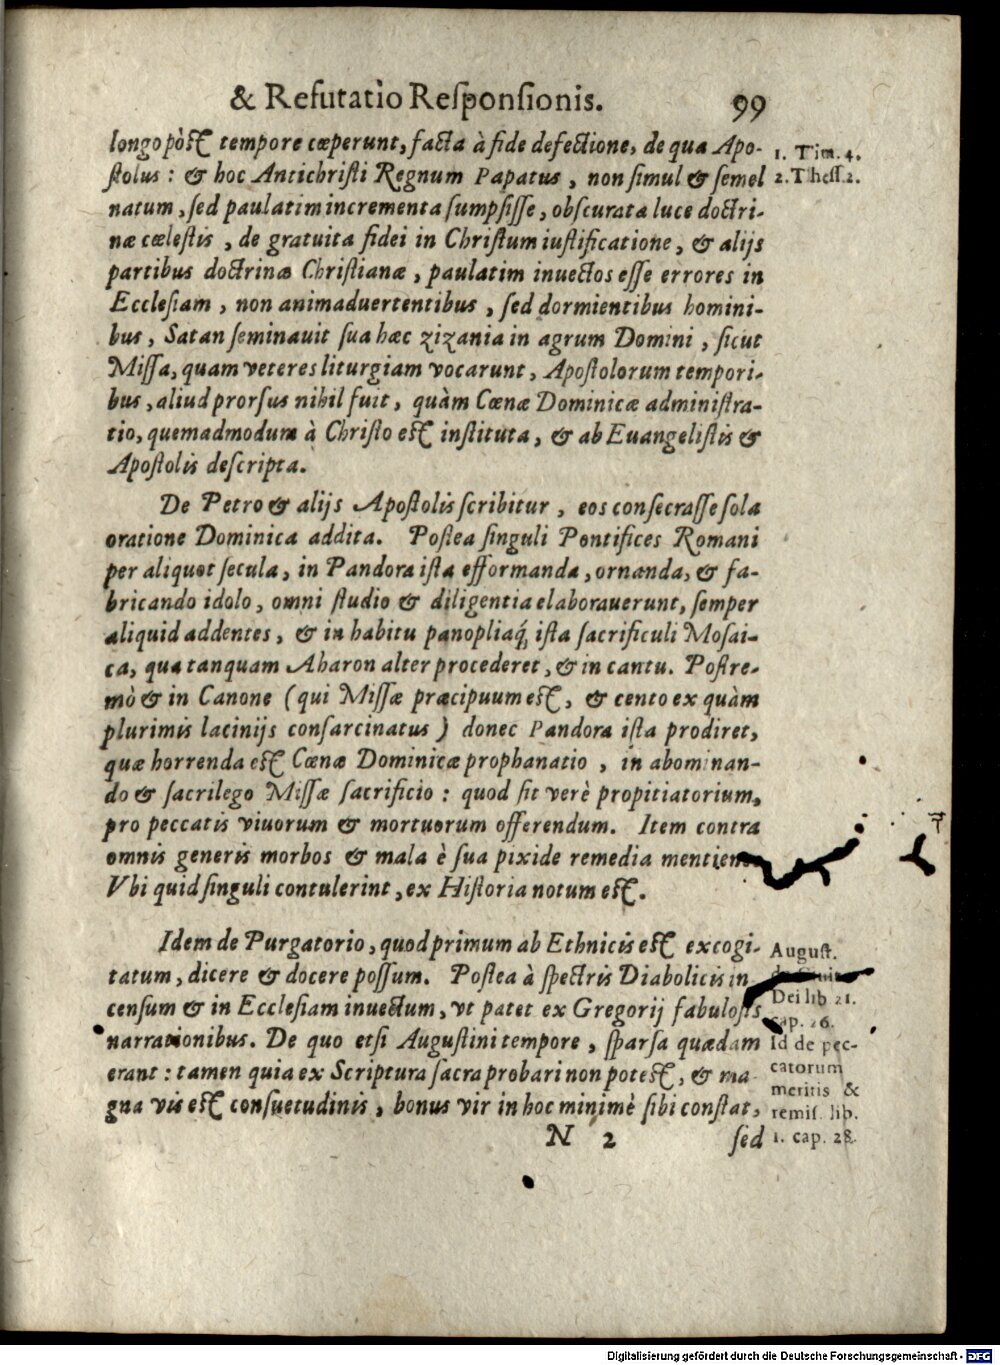 & Refutatio Responsionis. 99
longo pòst tempore cœperunt, facta à fide defectione, de qua Apo-
stolus: & hoc Antichristi Regnum Papatus, non simul & semel
natum, sed paulatim incrementa sumpsisse, obscurata luce doctri-
næ cœlestis, de gratuita fidei in Christum iustificatione, & alijs
partibus doctrinæ Christianæ, paulatim inuectos esse errores in
Ecclesiam, non animaduertentibus, sed dormientibus homini-
bus, Satan seminauit sua hæc zizania in agrum Domini, sicut
Missa, quam veteres liturgiam vocarunt, Apostolorum tempori-
bus, aliud prorsus nihil fuit, quàm Cœnæ Dominicæ administra-
tio, quemadmodum à Christo est instituta, & ab Euangelistis &
Apostolis descripta.
1. Tim. 4.
2. Thess. 2.
De Petro & alijs Apostolis scribitur, eos consecrasse sola
oratione Dominica addita. Postea singuli Pontifices Romani
per aliquot secula, in Pandora ista efformanda, ornanda, & fa-
bricando idolo, omni studio & diligentia elaborauerunt, semper
aliquid addentes, & in habitu panopliaq́; ista sacrificuli Mosai-
ca, qua tanquam Aharon alter procederet, & in cantu. Postre-
mò & in Canone (qui Missæ præcipuum est, & cento ex quàm
plurimis lacinijs consarcinatus) donec Pandora ista prodiret,
quæ horrenda est Cœnæ Dominicæ prophanatio, in abominan-
do & sacrilego Missæ sacrificio: quod sit verè propitiatorium,
pro peccatis viuorum & mortuorum offerendum. Item contra
omnis generis morbos & mala è sua pixide remedia
Vbi quid singuli contulerint, ex Historia notum est.
Idem de Purgatorio, quod primum ab Ethnicis est excogi-
tatum, dicere & docere possum. Postea à spectris Diabolicis in-
censum & in Ecclesiam inuectum, vt patet ex Gregorij fabulosis
narrationibus. De quo etsi Augustini tempore, sparsa quædam
erant: tamen quia ex Scriptura sacra probari non potest, & ma-
gna vis est consuetudinis, bonus vir in hoc minimè sibi constat,
August.
Dei lib 21.
cap. 26.
Id de pec-
catorum
meritis &
remis. lib.
1. cap. 28.
N 2 sed
Digitalisierung gefördert durch die Deutsche Forschungsgemeinschaft - DFG